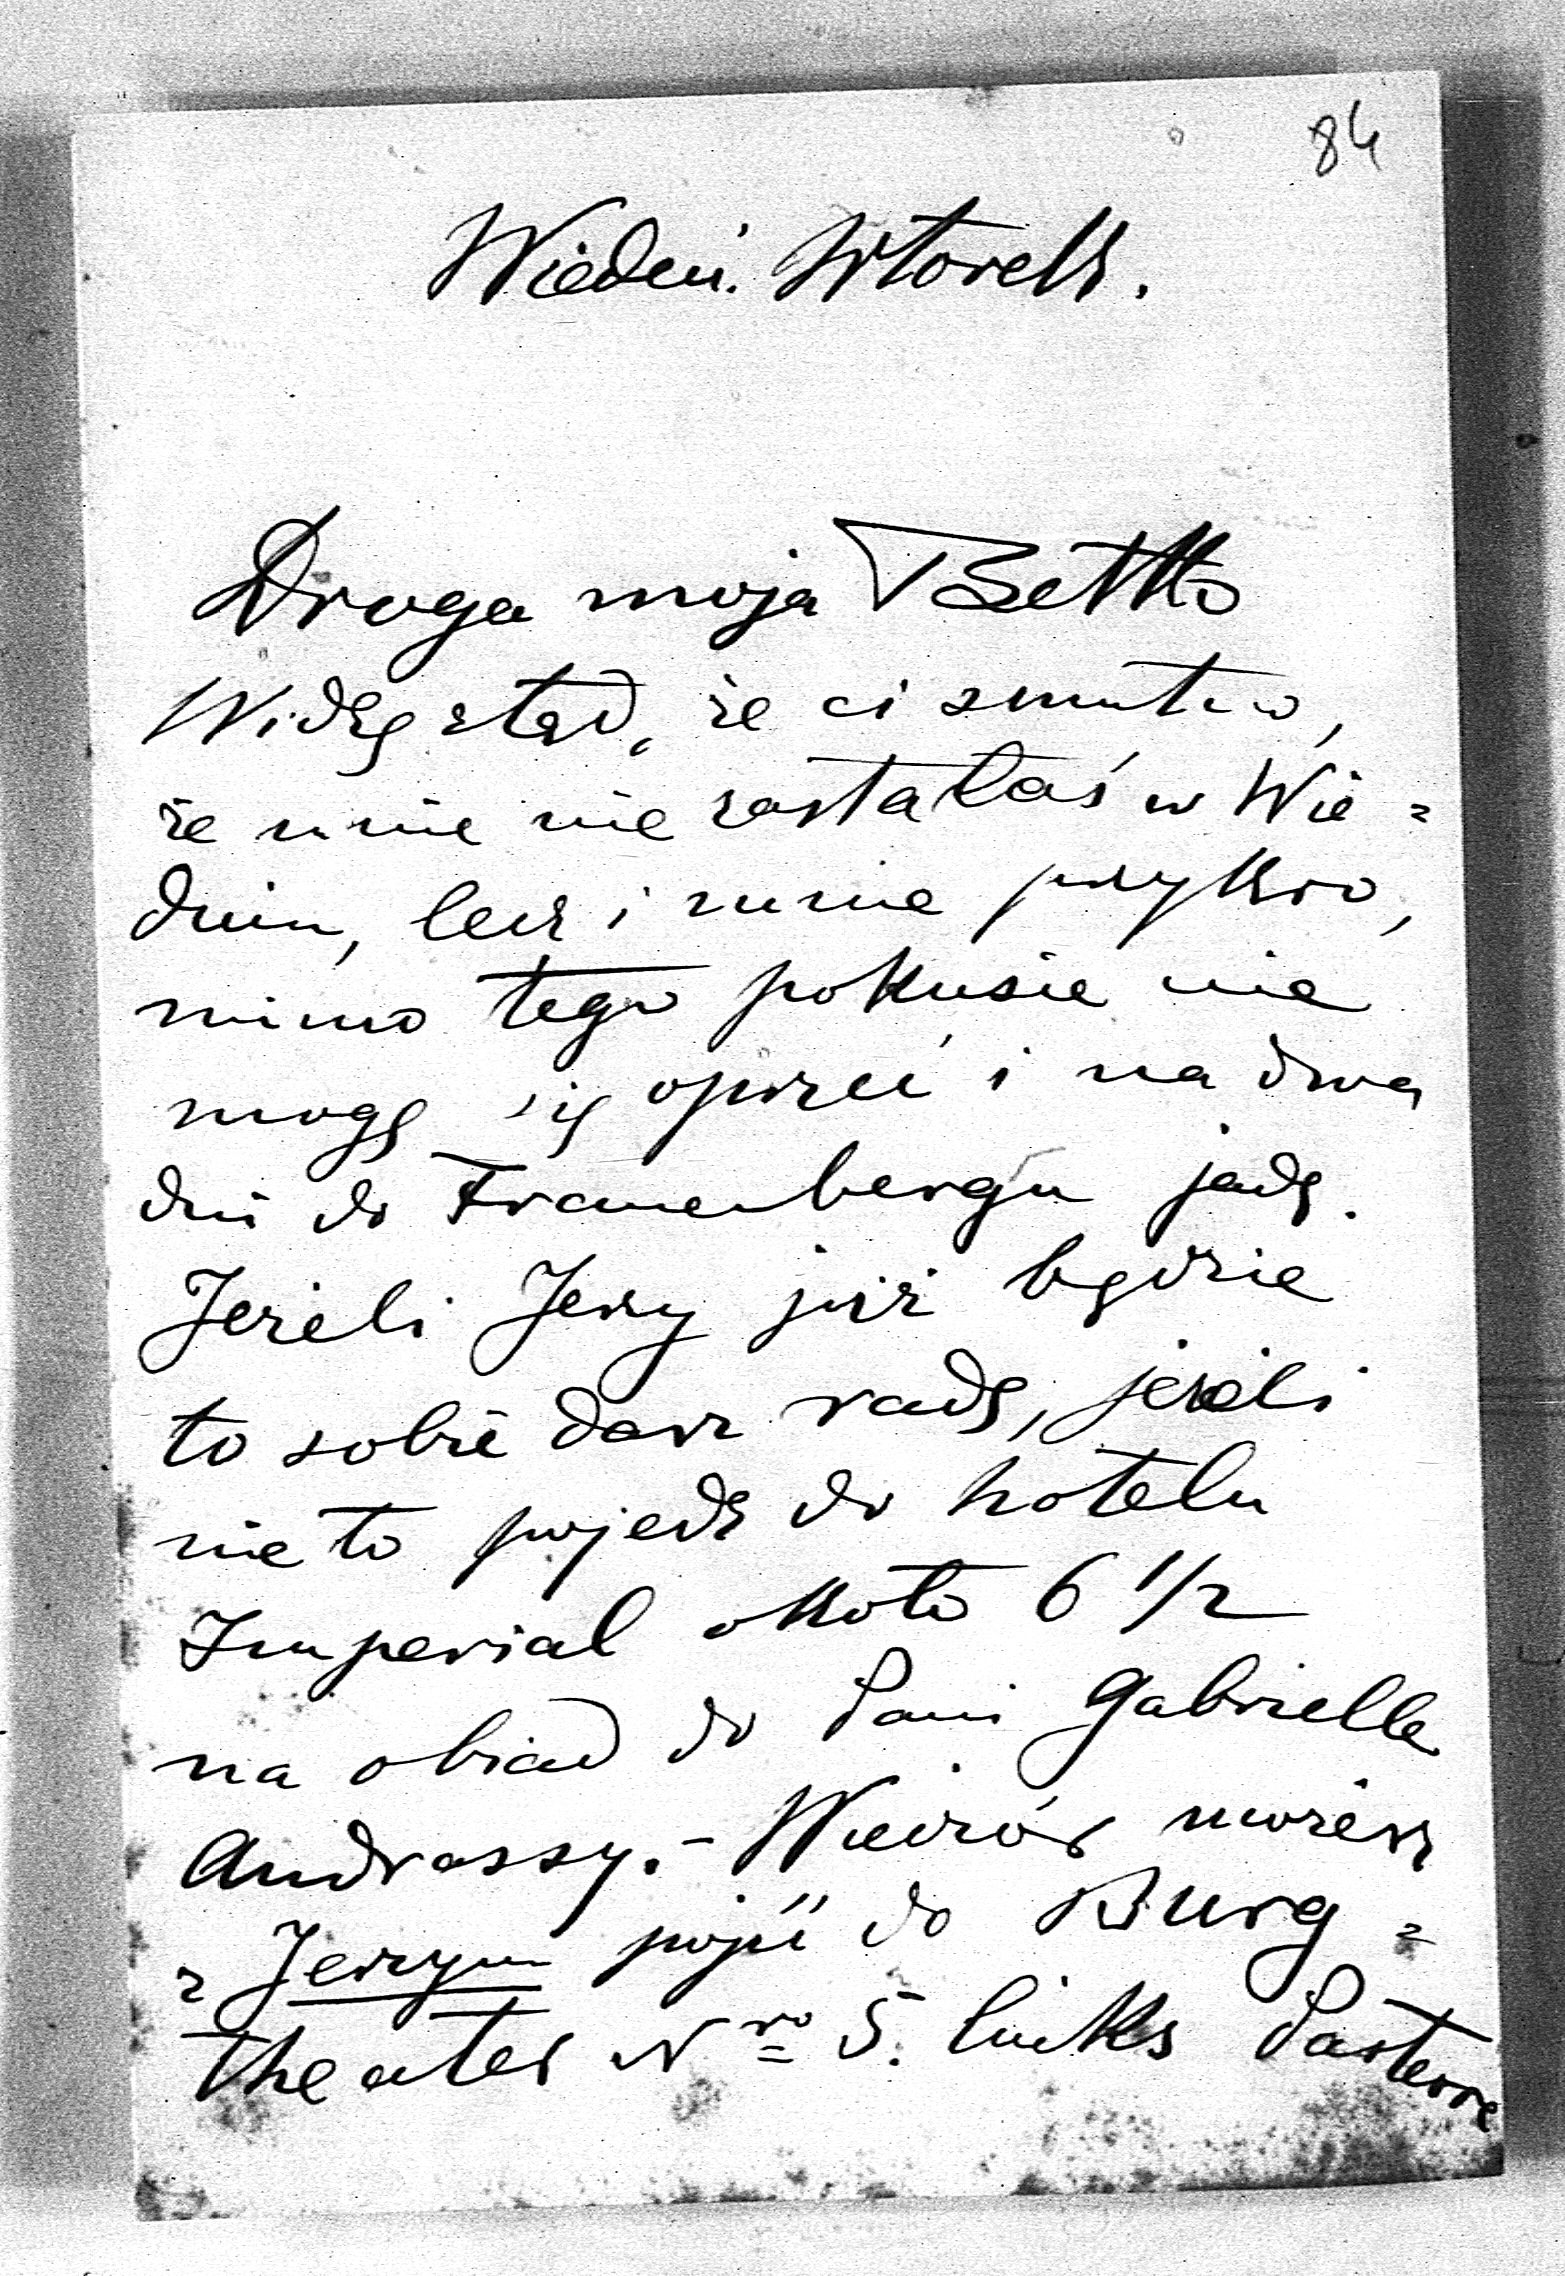 84
Wiedeń. Wtorek.
Droga moja Betko
Widzę ztąd, że ci smutno,
że mnie nie zastałaś w Wie=
dniu, lecz i mnie przykro,
mimo tego pokusie nie
mogę się oprzeć i na dwa
dni do Frauenbergu jadę.
Jeżeli Jerzy już będzie
to sobie dasz radę, jeżeli
nie to pojedz do hotelu
Imperial około 6 1/2
na obiad do Pani Gabrielle
Andrassy. - Wieczór możesz
z Jerzym pójść do Burg=
theater Nro 5. links Parterre